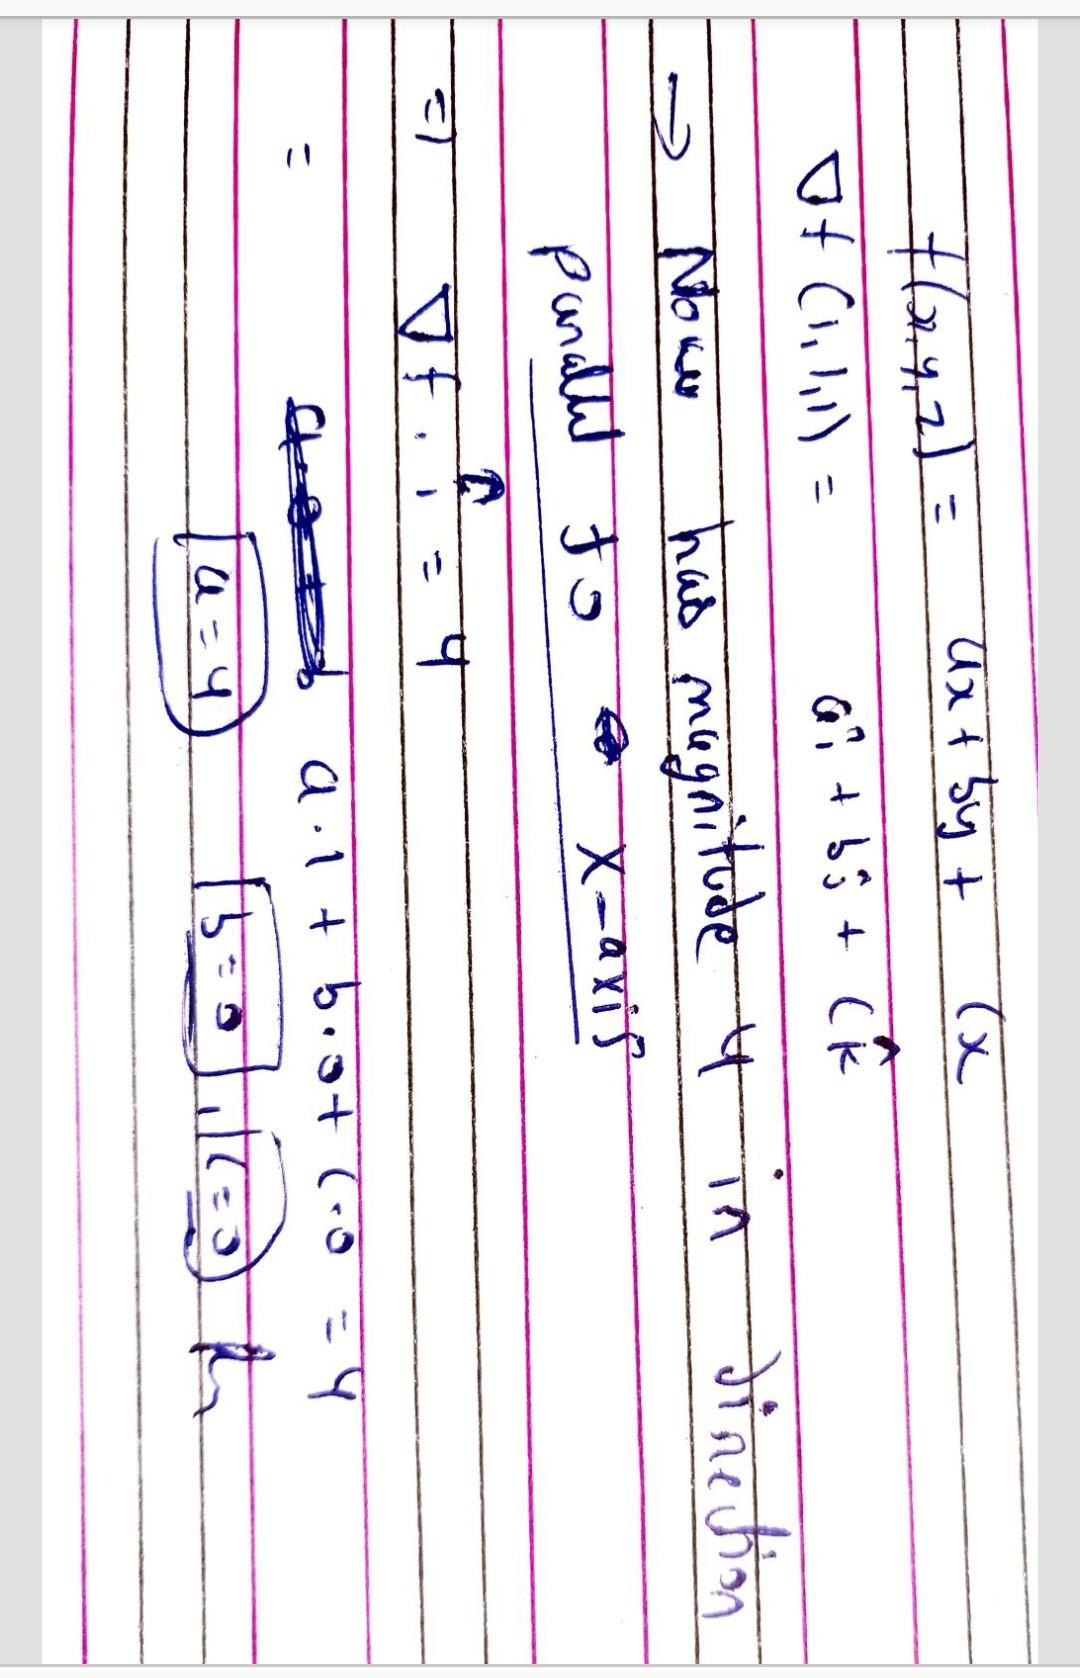 f(x,y,z) = ax + by + cx
∇f (1,1,1) = aî + bĵ + ck̂
→ Now has magnitude 4 in direction
parallel to x-axis
=) ∇f . î = 4
= a.1 + b.0 + c.0 = 4
a=4 b=0, c=0